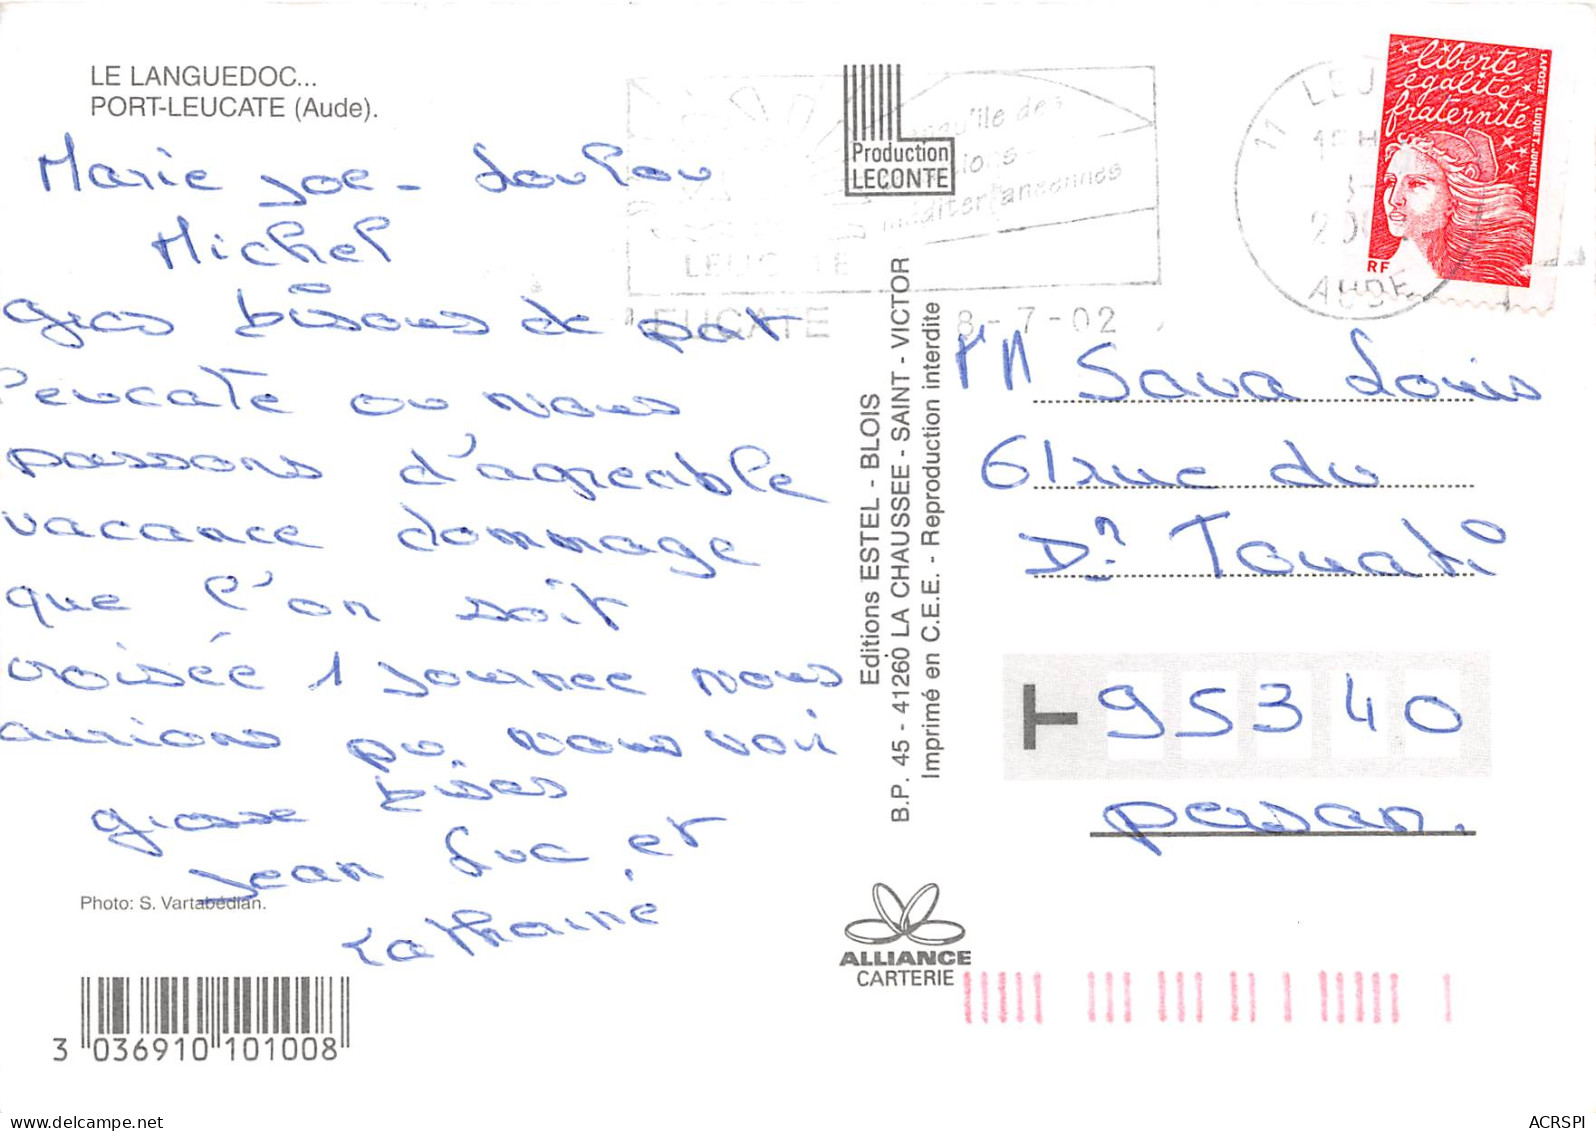 LE LANGUEDOC...
PORT-LEUCATE (Aude).
Marie Joe - Loulou
Michel
gros bisous de port
Leucate ou nous
passons d'agreable
vacance dommage
que l'on soit
croisée 1 journee nous
aurions pu nous voir
grosse bises
Jean Luc et
Photo: S. Vartabédian.
3 036910 101008
Production
LECONTE
qu'ile des
méditerranéennes
LEUCATE
8-7-02
Editions ESTEL - BLOIS
B.P. 45 - 41260 LA CHAUSSEE - SAINT - VICTOR
Imprimé en C.E.E. - Reproduction interdite
ALLIANCE
CARTERIE
11
AUDE
liberté
égalité
fraternité
LAPOSTE LUQUET-JUMELET
RF
Mr Sava Louis
61 rue du
Dr Touati
T 95340
persan.
delcampe.net
ACRSPI